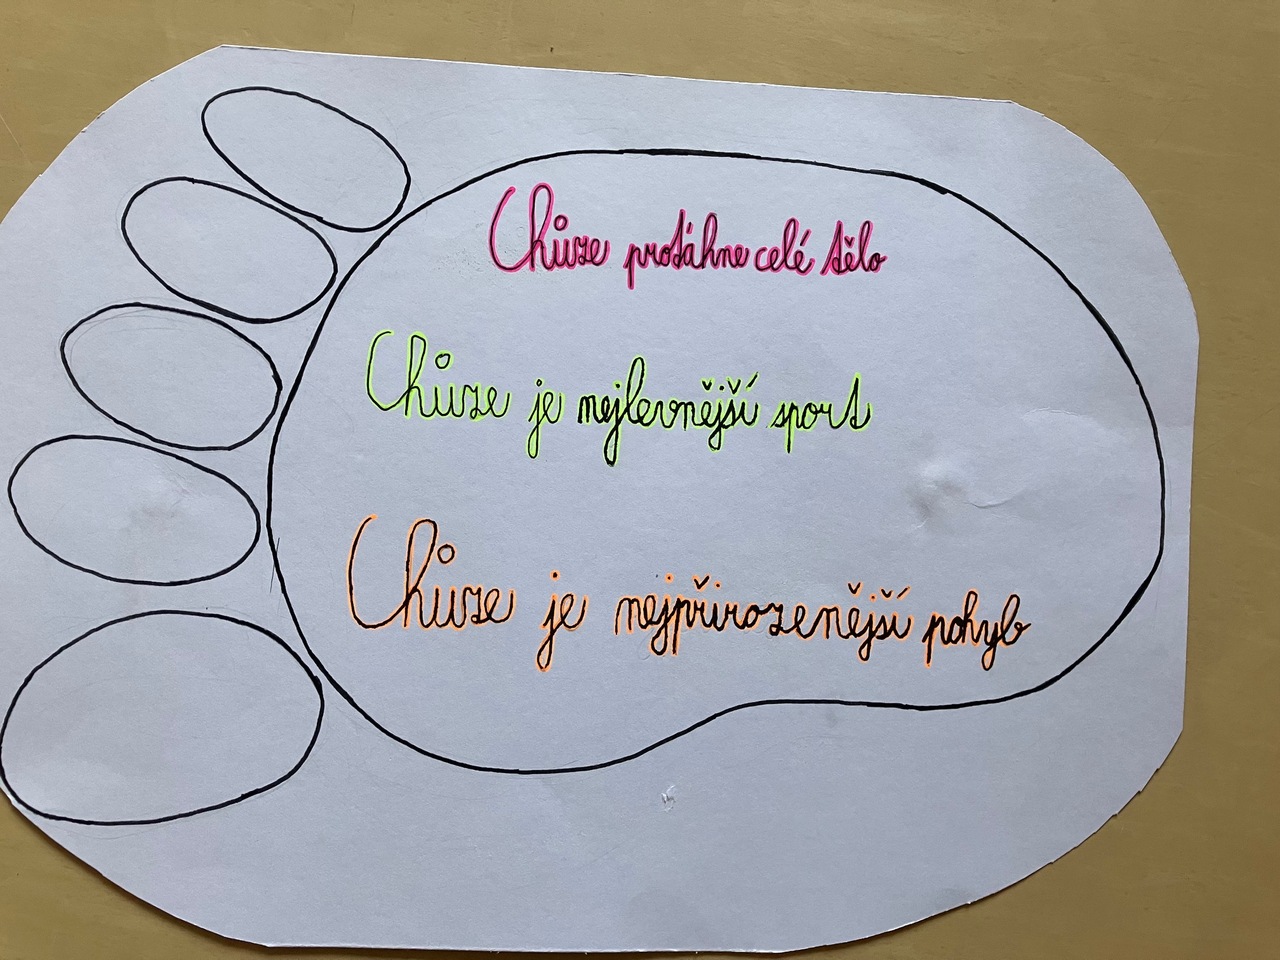 Chůze protáhne celé tělo
Chůze je nejlevnější sport
Chůze je nejpřirozenější pohyb